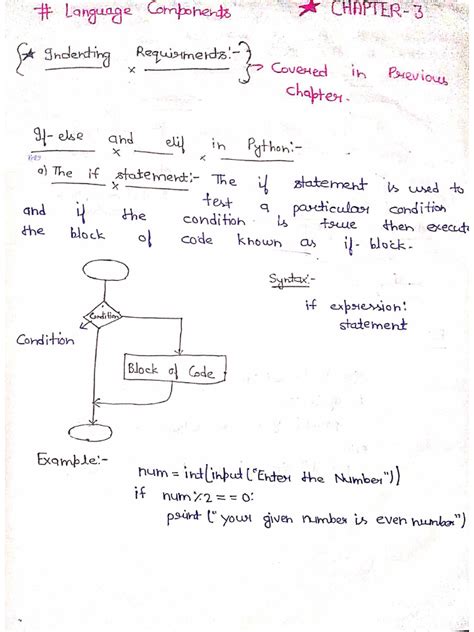 # Language Components
★ CHAPTER-3
{★ Indenting Requirments:-} → Covered in Previous
Chapter.
If-else and elif in Python:-
a) The if statement:- The if statement is used to
test a particular condition
and if the condition is true then execute
the block of code known as if-block.
Syntax:-
if expression:
statement
Condition
Condition
Block of Code
Example:-
num = int(input("Enter the Number"))
if num%2 == 0:
print ("your given number is even number")